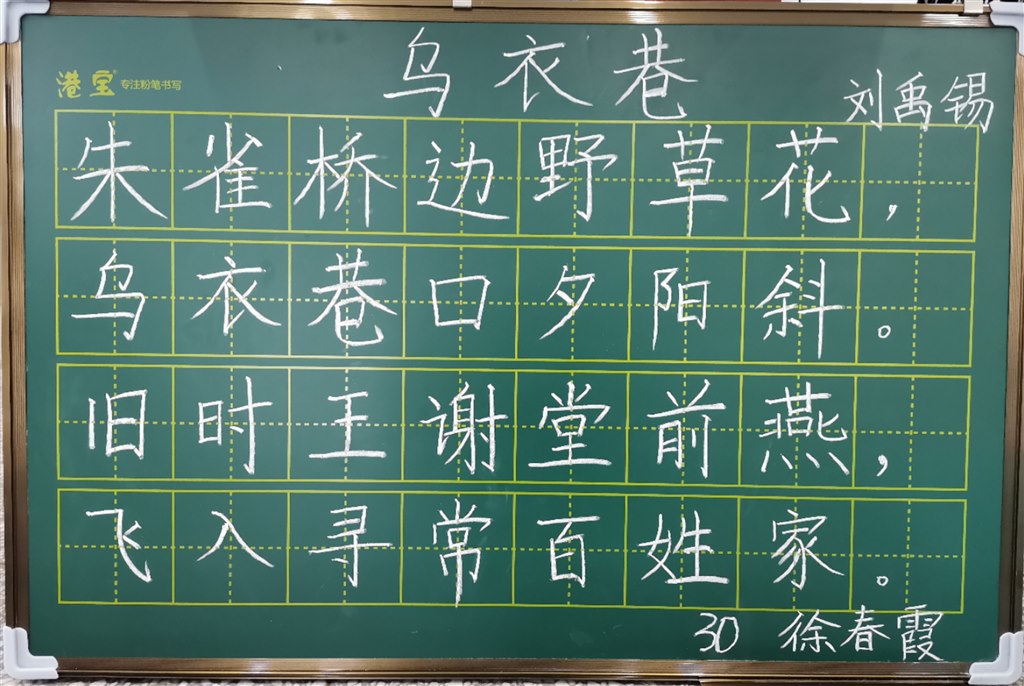 乌衣巷
港宝® 专注粉笔书写
刘禹锡
朱雀桥边野草花，
乌衣巷口夕阳斜。
旧时王谢堂前燕，
飞入寻常百姓家。
30 徐春霞